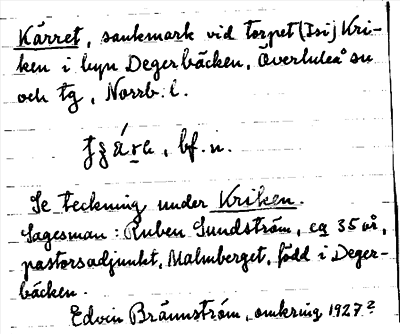 Kärret, sankmark vid torpet (Isi) Kri-
ken i byn Degerbäcken, Överluleå sn
och tg, Norrb. l.
bf. n.
Se teckning under Kriken.
Sagesman: Ruben Sundström, ca 35 år,
pastorsadjunkt, Malmberget, född i Deger-
bäcken.
Edvin Brännström, omkring 1927?